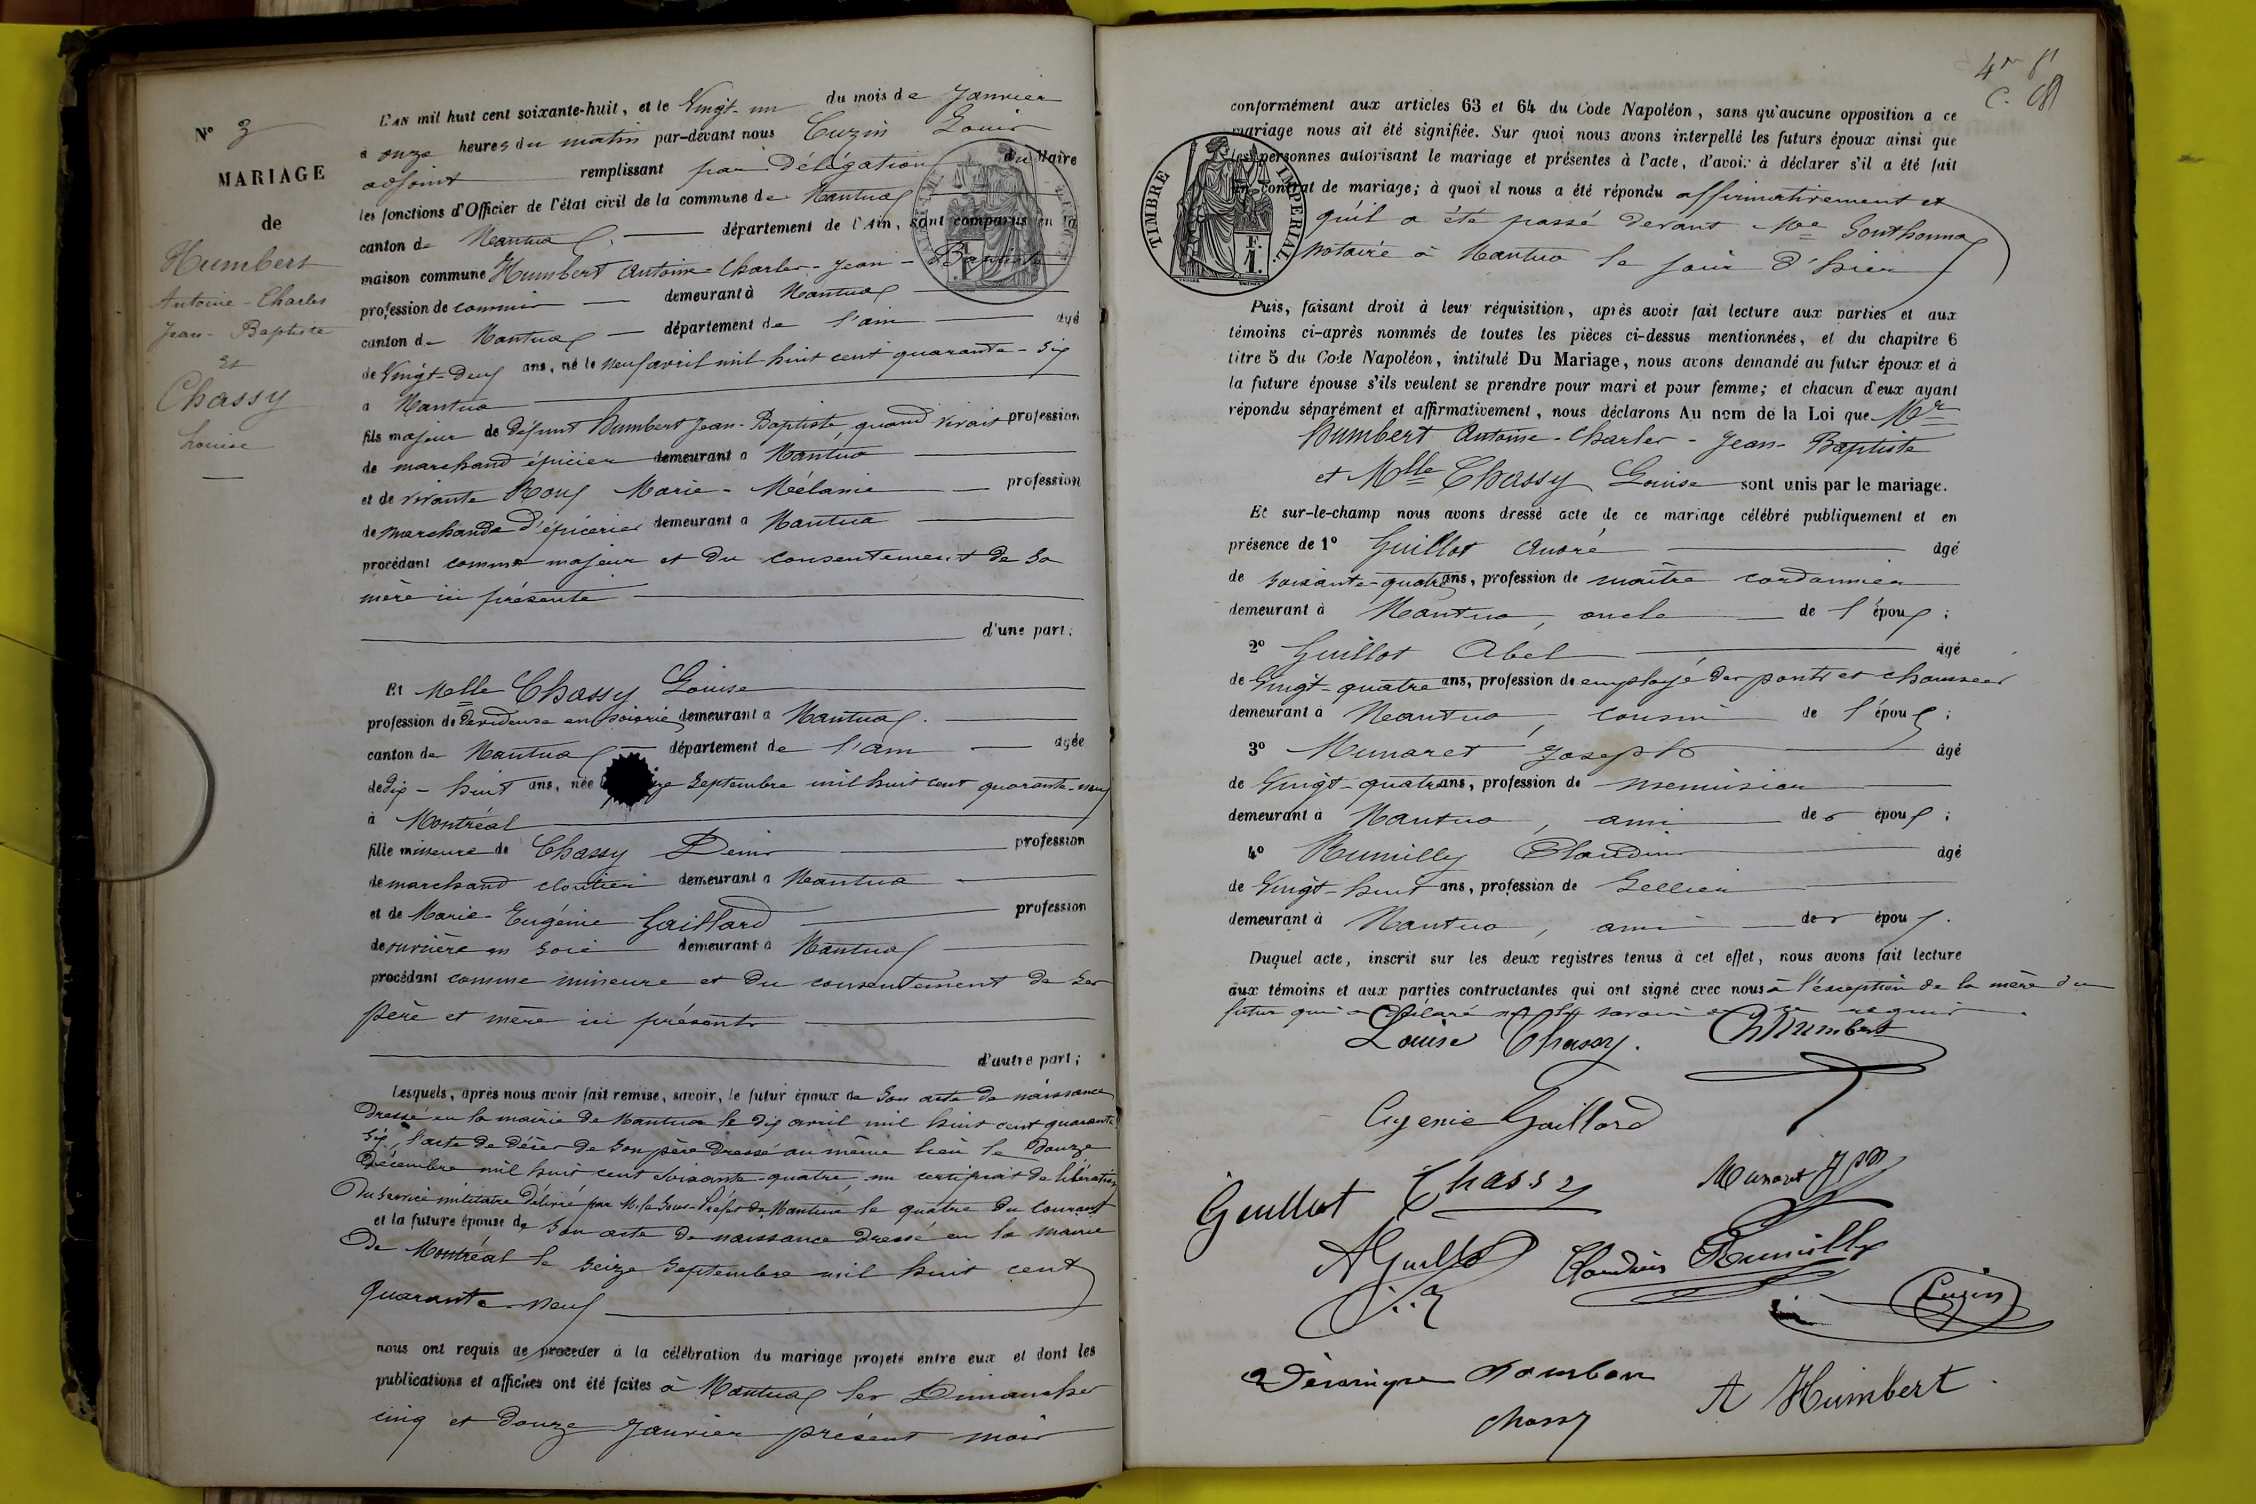 N° 3
MARIAGE
de
Humbert
Antoine-Charles
Jean-Baptiste
et
Chassy
Louise
L'an mil huit cent soixante-huit, et le Vingt-un du mois de Janvier
à onze heures du matin par-devant nous Cuzin Louis
adjoint remplissant par délégation du Maire
les fonctions d'Officier de l'état civil de la commune de Nantua
canton de Nantua département de l'Ain, sont comparus en la
maison commune Humbert Antoine-Charles-Jean-Baptiste
profession de commis demeurant à Nantua
canton de Nantua département de l'ain âgé
de Vingt-deux ans, né le neuf avril mil huit cent quarante-six
à Nantua
fils majeur de défunt Humbert Jean-Baptiste, quand vivait profession
de marchand épicier demeurant à Nantua
et de vivante Roux Marie-Mélanie profession
de marchande d'épicerie demeurant à Nantua
procédant comme majeur et du consentement de sa
mère ici présente
d'une part;
Et Melle Chassy Louise
profession de dévideuse en soierie demeurant à Nantua
canton de Nantua département de l'ain âgée
de dix-huit ans, née septembre mil huit cent quarante-neuf
à Montréal
fille mineure de Chassy Denis profession
de marchand cloutier demeurant à Nantua
et de Marie-Eugénie Gaillard profession
de ouvrière en soie demeurant à Nantua
procédant comme mineure et du consentement de ses
père et mère ici présents
d'autre part;
Lesquels, après nous avoir fait remise, savoir, le futur époux de son acte de naissance
dressé en la mairie de Nantua le dix avril mil huit cent quarante
six, l'acte de décès de son père dressé au même lieu le douze
décembre mil huit cent soixante-quatre, un certificat de libération
du service militaire délivré par M. le Sous-Préfet de Nantua le quatre du courant
et la future épouse de son acte de naissance dressé en la mairie
de Montréal le seize septembre mil huit cent
quarante-neuf
nous ont requis de procéder à la célébration du mariage projeté entre eux et dont les
publications et affiches ont été faites à Nantua les Dimanches
cinq et douze Janvier présent mois
conformément aux articles 63 et 64 du Code Napoléon, sans qu'aucune opposition à ce
mariage nous ait été signifiée. Sur quoi nous avons interpellé les futurs époux ainsi que
les personnes autorisant le mariage et présentes à l'acte, d'avoir à déclarer s'il a été fait
un contrat de mariage; à quoi il nous a été répondu affirmativement et
qu'il a été passé devant Me Southonnax
notaire à Nantua le jour d'hier
TIMBRE IMPERIAL.
Puis, faisant droit à leur réquisition, après avoir fait lecture aux parties et aux
témoins ci-après nommés de toutes les pièces ci-dessus mentionnées, et du chapitre 6
titre 5 du Code Napoléon, intitulé Du Mariage, nous avons demandé au futur époux et à
la future épouse s'ils veulent se prendre pour mari et pour femme; et chacun d'eux ayant
répondu séparément et affirmativement, nous déclarons Au nom de la Loi que Mr
Humbert Antoine-Charles-Jean-Baptiste
et Mlle Chassy Louise sont unis par le mariage.
Et sur-le-champ nous avons dressé acte de ce mariage célébré publiquement et en
présence de 1° Guillot André âgé
de soixante-quatre ans, profession de maître cordonnier
demeurant à Nantua, oncle de l'époux;
2° Guillot Abel âgé
de Vingt-quatre ans, profession de employé des ponts et chaussées
demeurant à Nantua, cousin de l'époux;
3° Munaret Joseph âgé
de Vingt-quatre ans, profession de menuisier
demeurant à Nantua, ami des époux;
4° Rumilly Claudius âgé
de Vingt-huit ans, profession de Sellier
demeurant à Nantua, ami des époux.
Duquel acte, inscrit sur les deux registres tenus à cet effet, nous avons fait lecture
aux témoins et aux parties contractantes qui ont signé avec nous à l'exception de la mère du
futur qui a déclaré ne le savoir de ce requis.
Louise Chassy. Ch Humbert
Eugenie Gaillard
Guillot Chassy Munaret Jph
A Guillot Claudius Rumilly
Cuzin
chassy A Humbert